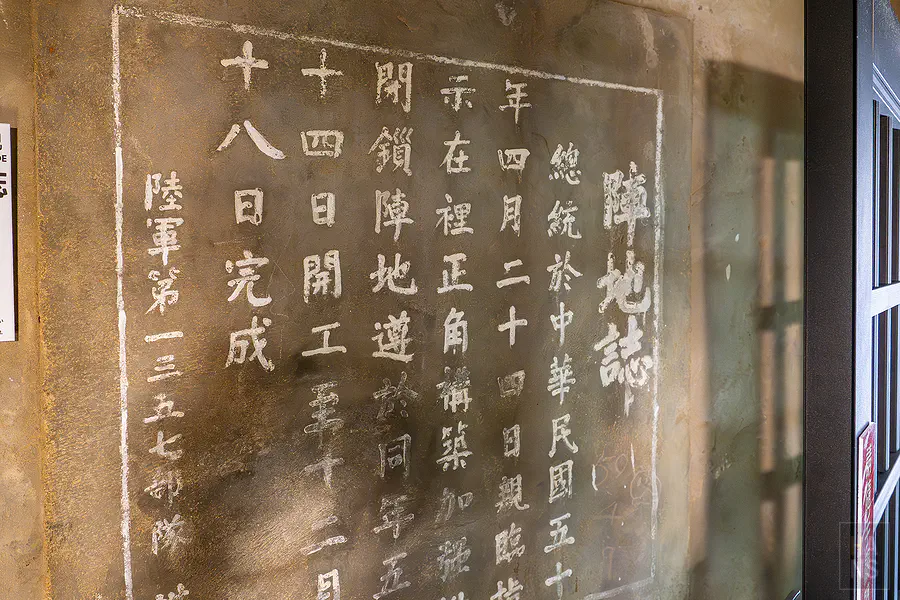 陣地誌
總統於中華民國五十
年四月二十四日親臨指
示在裡正角構築加強
閉鎖陣地遵於同年五
十四日開工至十二月
十八日完成
陸軍第一三五七部隊